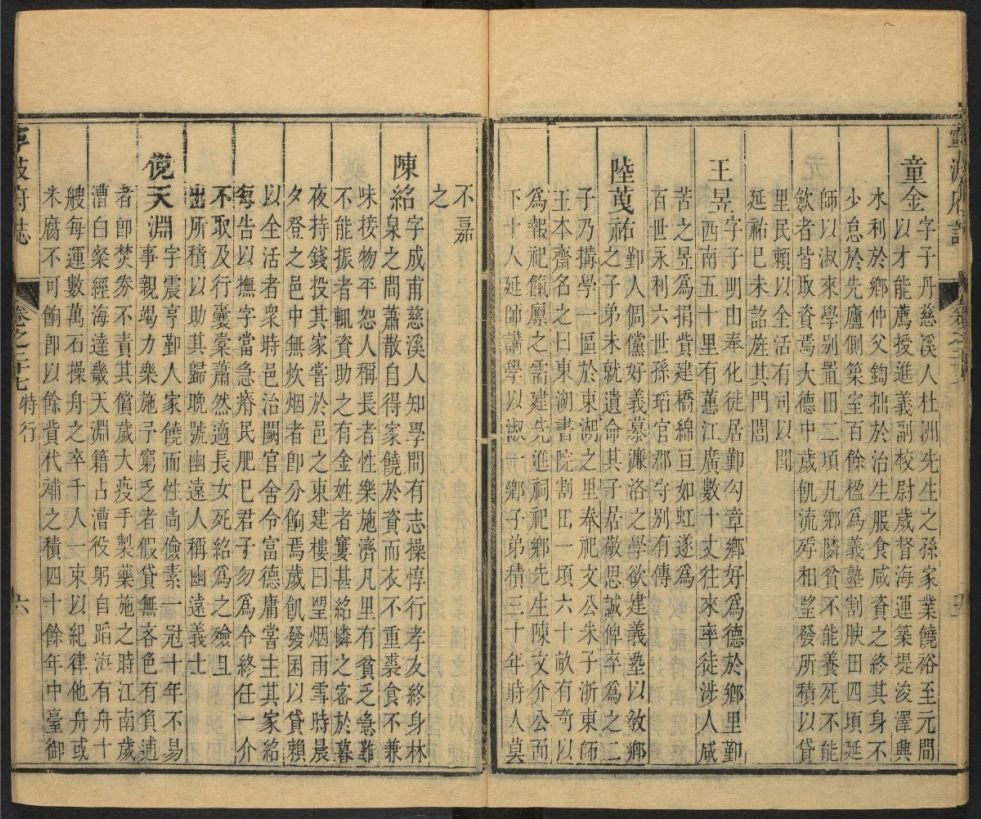 童金字子丹慈溪人杜洲先生之孫家業饒裕至元間
以才能薦授進義副校尉歲督海運築堤浚澤興
水利於鄉仲父鈞拙於治生服食咸資之終其身不
少怠於先廬側築室百餘楹為義塾割腴田四頃延
師以淑來學別置田二頃凡鄉隣貧不能養死不能
歛者皆取資焉大德中歲飢流殍相望發所積以貸
里民賴以全活有司以聞
延祐巳未詔旌其門閭
王昺字子明由奉化徙居鄞勾章鄉好為德於鄉里鄞
西南五十里有蕙江廣數十丈往來率徒涉人咸
苦之昺為捐貲建橋綿亘如虹遂為
百世永利六世孫珆官郡守別有傳
陸萬祐鄞人倜儻好義慕濂洛之學欲建義塾以敎鄉
之子弟未就遺命其子居敬思誠俾卒為之二
子乃搆學一區於東湖之里春祀文公朱子浙東師
王本齋名之曰東湖書院割田一頃六十畝有奇以
為報祀餼廩之需建先進祠祀鄉先生陳文介公而
下十人延師講學以淑一鄉子弟積三十年時人莫
不嘉
之
陳紹字成甫慈溪人知學問有志操惇行孝友終身林
泉之間蕭散自得家饒於資而衣不重裘食不兼
味接物平恕人稱長者性樂施濟凡里有貧乏急難
不能振者輒資助之有金姓者窶甚紹憐之客於暮
夜持錢投其家嘗於邑之東建樓曰望烟雨雪時晨
夕登之邑中無炊烟者即分餉焉歲飢發囷以貸賴
以全活者衆時邑治闕官舍令富德庸當主其家紹
每告以撫字當急瘠民肥巳君子勿為令終任一介
不取及行囊橐蕭然適長女死紹為之殮且
出所積以助其歸晚號幽遠人稱幽遠義士
倪天淵字震亨鄞人家饒而性尚儉素一冠十年不易
事親竭力樂施予窮乏者假貸無吝色有負逋
者即焚券不責其償歲大疫手製藥施之時江南歲
漕白粲經海達畿天淵籍占漕役躬自蹈海有舟十
艘每運數萬石操舟之卒千人一束以紀律他舟或
米腐不可餉即以餘貲代補之積四十餘年中臺御
寧波府志
卷之三十七
特行
六